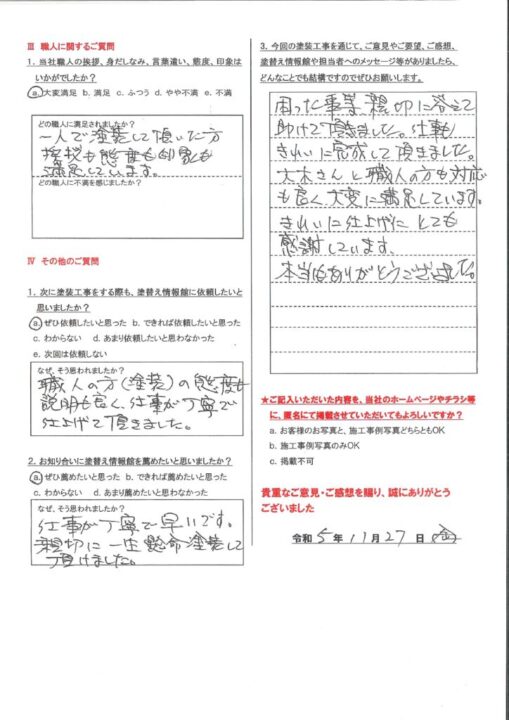 Ⅲ 職人に関するご質問
1. 当社職人の挨拶、身だしなみ、言葉遣い、態度、印象は
いかがでしたか?
a. 大変満足 b. 満足 c. ふつう d. やや不満 e. 不満
どの職人に満足されましたか?
一人で塗装して頂いた方
挨拶も態度も印象も
満足しています。
どの職人に不満を感じましたか?
Ⅳ その他のご質問
1. 次に塗装工事をする際も、塗替え情報館に依頼したいと
思いましたか?
a. ぜひ依頼したいと思った b. できれば依頼したいと思った
c. わからない d. あまり依頼したいと思わなかった
e. 次回は依頼しない
なぜ、そう思われましたか?
職人の方(塗装)の態度も
説明も良く、仕事が丁寧で
仕上げて頂きました。
2. お知り合いに塗替え情報館を薦めたいと思いましたか?
a. ぜひ薦めたいと思った b. できれば薦めたいと思った
c. わからない d. あまり薦めたいと思わなかった
なぜ、そう思われましたか?
仕事が丁寧で早いです。
親切に一生懸命塗装して
頂けました。
3. 今回の塗装工事を通じて、ご意見やご要望、ご感想、
塗替え情報館や担当者へのメッセージ等がありましたら、
どんなことでも結構ですのでぜひお願いします。
困った事業 親切に答えて
助けて頂きました。仕事も
きれいに完成して頂きました。
大木さんと職人の方も対応
も良く大変に満足しています。
きれいに仕上げに とても
感謝しています。
本当にありがとうございました。
★ご記入いただいた内容を、当社のホームページやチラシ等
に、匿名にて掲載させていただいてもよろしいですか?
a. お客様のお写真と、施工事例写真どちらともOK
b. 施工事例写真のみOK
c. 掲載不可
貴重なご意見・ご感想を賜り、誠にありがとう
ございました
令和 5 年 11 月 27 日